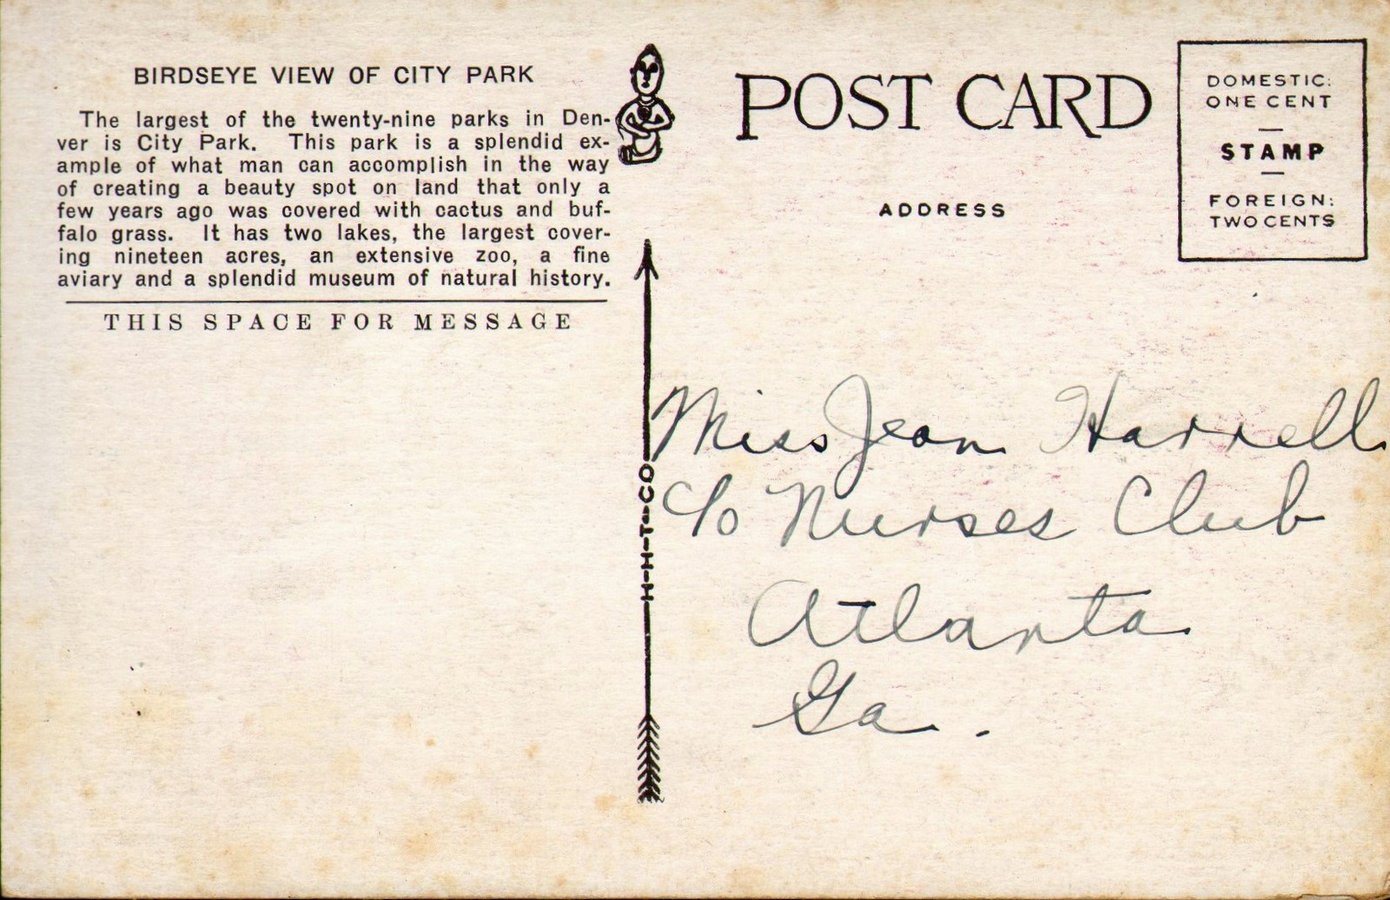 BIRDSEYE VIEW OF CITY PARK
The largest of the twenty-nine parks in Den-
ver is City Park. This park is a splendid ex-
ample of what man can accomplish in the way
of creating a beauty spot on land that only a
few years ago was covered with cactus and buf-
falo grass. It has two lakes, the largest cover-
ing nineteen acres, an extensive zoo, a fine
aviary and a splendid museum of natural history.
THIS SPACE FOR MESSAGE
H-H-T-CO
POST CARD
ADDRESS
DOMESTIC:
ONE CENT
STAMP
FOREIGN:
TWO CENTS
Miss Jean Harrell
c/o Nurses Club
Atlanta
Ga.